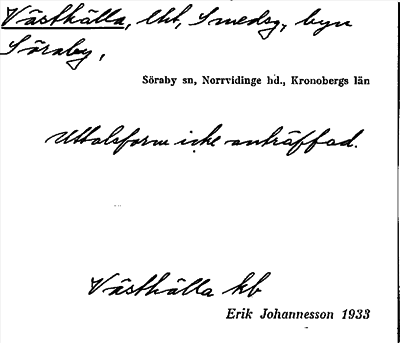 Västkälla, lht, Smedsg, byn
Söraby,
Söraby sn, Norrvidinge hd., Kronobergs län
Uttalsform icke anträffad.
Västkälla kb
Erik Johannesson 1933